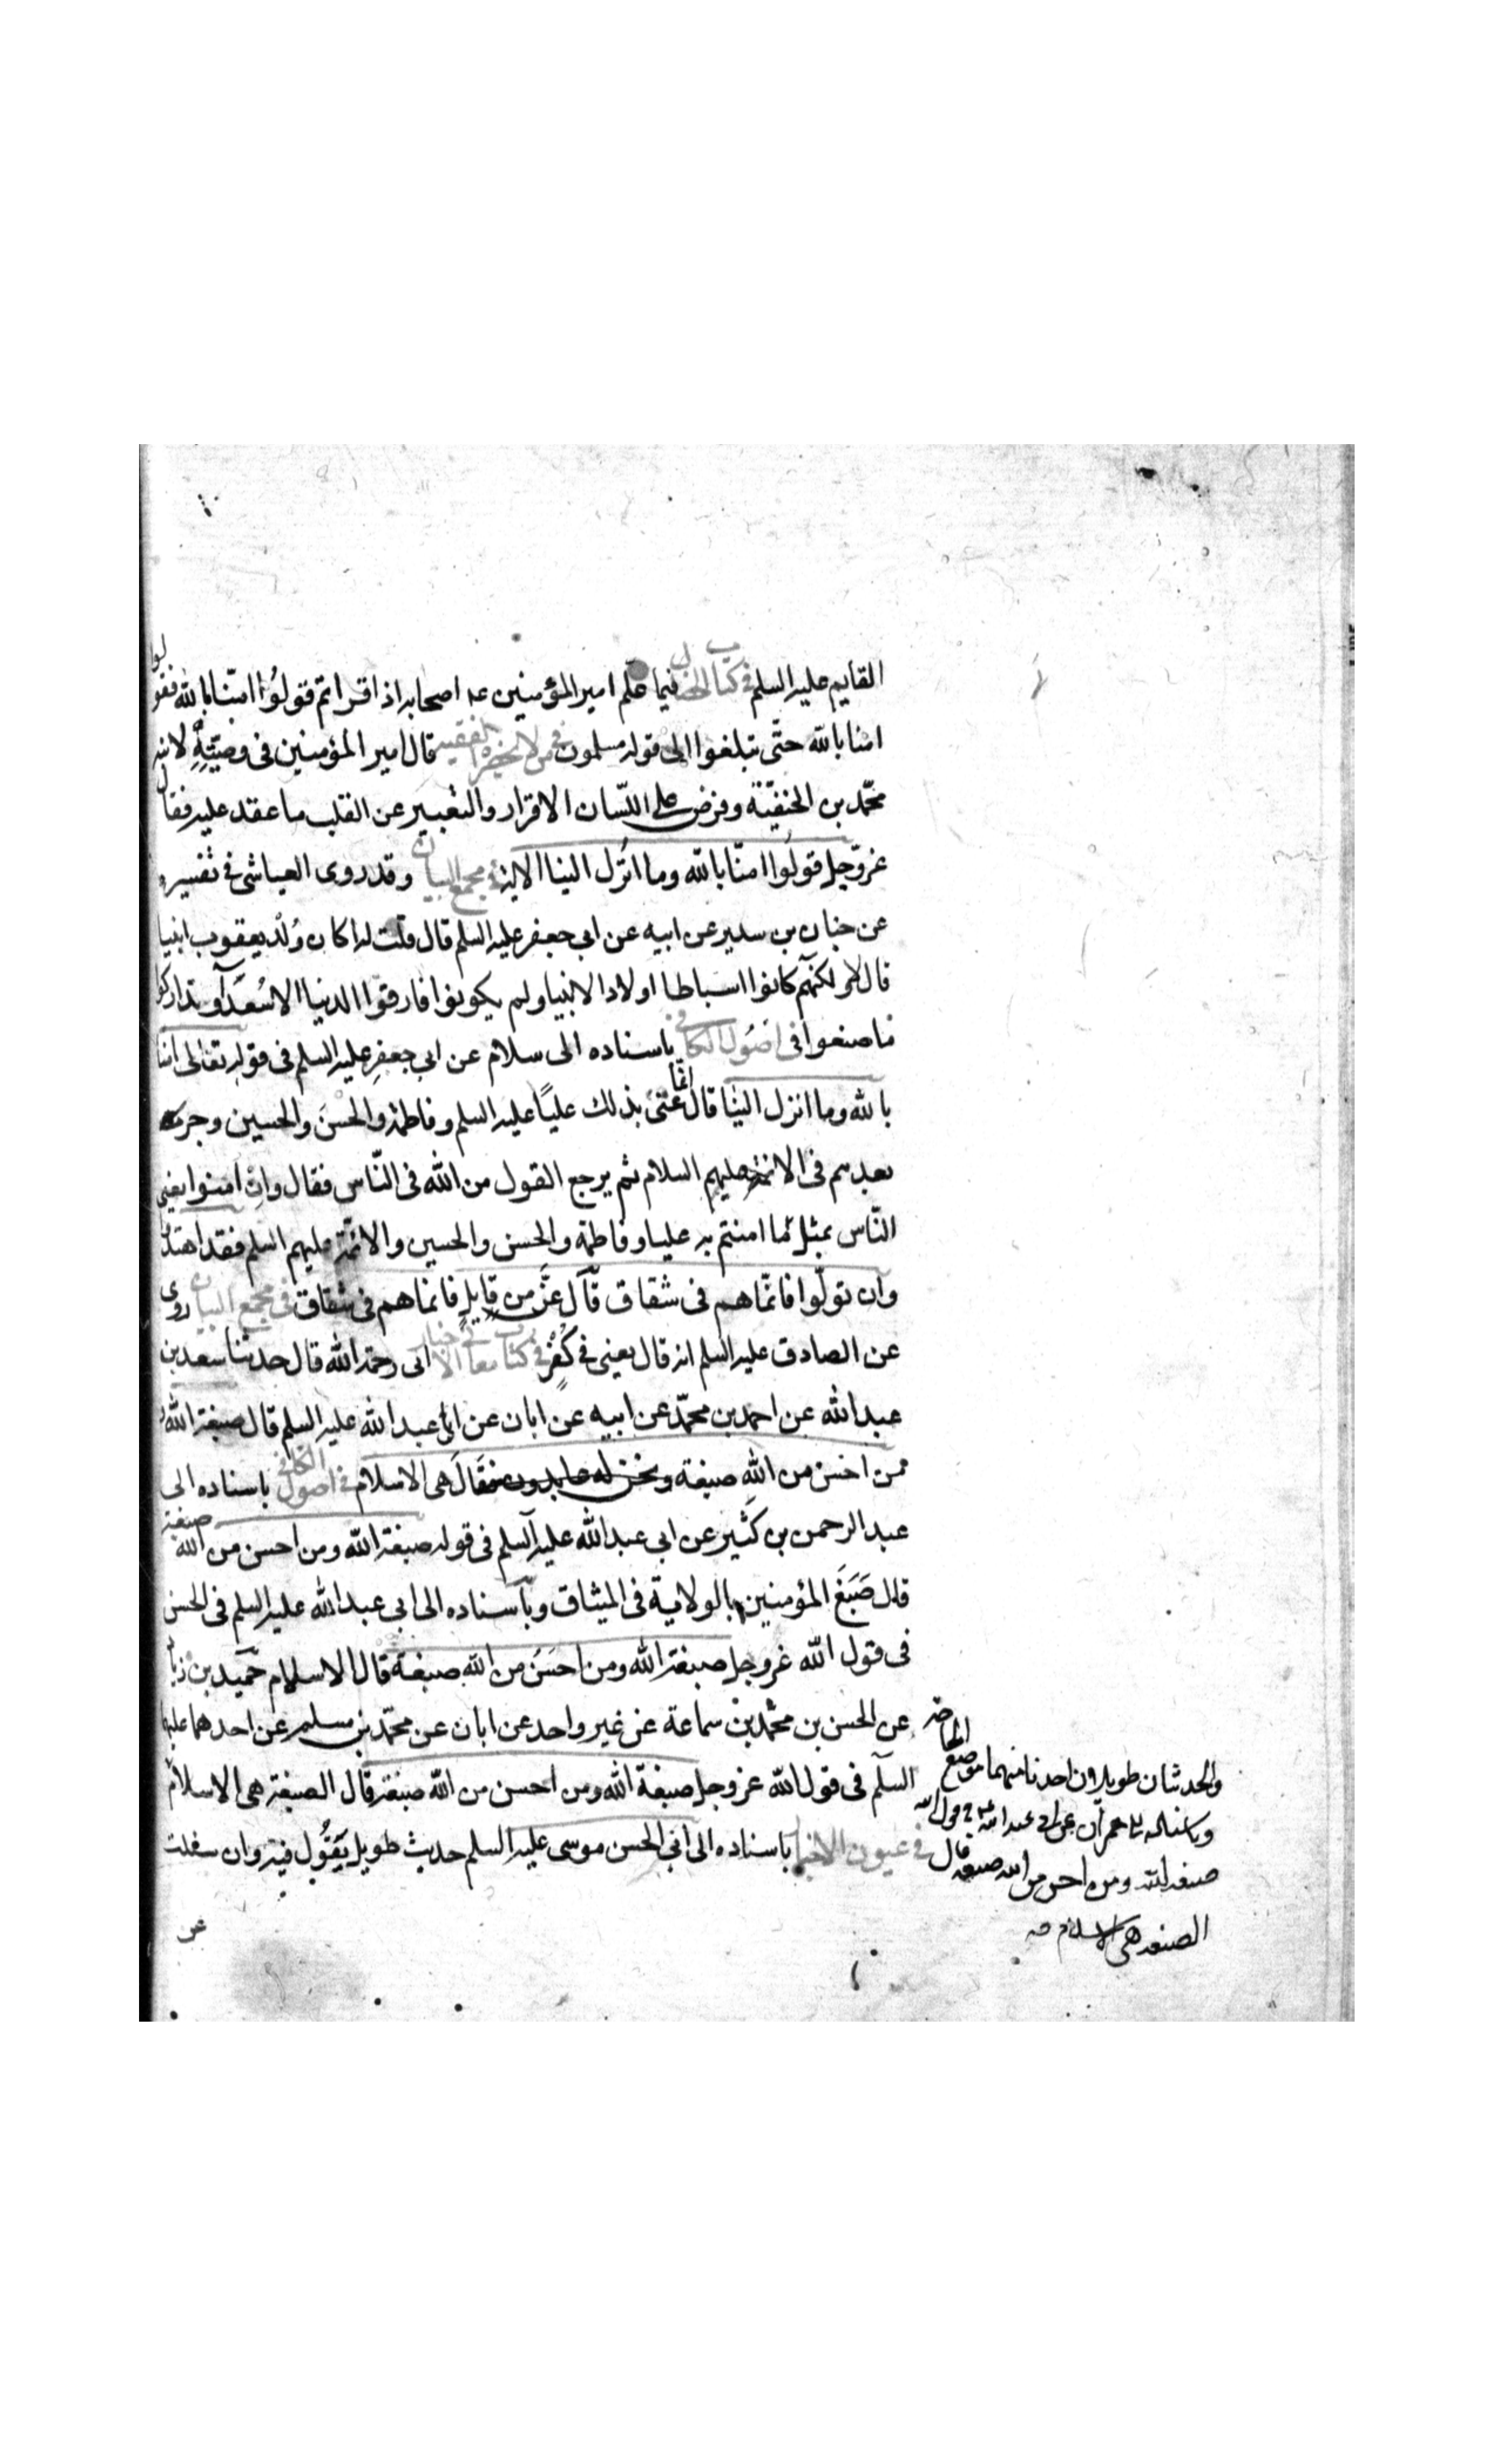 القايم عليه السلم فى كتاب الخصال فيما علّم امير المؤمنين عه اصحابه اذا قراتم قولوا امنّا بالله فقولوا
امنا بالله حتّى تبلغوا الى قوله مسلمون فى من لا يحضره الفقيه قال امير المؤمنين فى وصيّتهِ لابنه
محمّد بن الحنفيّة وفرض على اللّسان الاقرار والتعبير عن القلب ما عقد عليه فقال
عزوّجل قولوا امنّا بالله وما انزل الينا الاية فى مجمع البيان وقد روى العياشى فى تفسيره
عن حنان بن سدير عن ابيه عن ابى جعفر عليه السلم قال قلت له اكان وُلْد يعقوب انبيا
قال لا ولكنّهم كانوا اسباطا اولاد الانبيا ولم يكونوا فارقوا الدنيا الا سُعَدَآء وتذاركوا
ما صنعوا فى اصُول الكافى باسناده الى سلام عن ابى جعفر عليه السلم فى قوله تعالى امنا
بالله وما انزل الينا قال انّما عنى بذلك عليًا عليه السلم وفاطمة والحسن والحسين وجرت
بعدهم فى الائمة عليهم السلام ثم يرجع القول من الله فى النّاس فقال وان امنوا يعنى
النّاس بمثل ما امنتم به عليا وفاطمة والحسن والحسين والائمّة عليهم السلم فقد اهتدوا
وان تولّوا فانّما هم فى شقاق قال عزّ من قايل فانما هم فى شقاق فى مجمع البيان روى
عن الصادق عليه السلم انه قال يعنى فى كُفْرٍ فى كتاب معانى الاخبار ابى رحمة الله قال حدثنا سعد بن
عبد الله عن احمد بن محمّد عن ابيه عن ابان عن ابى عبد الله عليه السلم قال صبغة الله و
من احسن من الله صبغة ونحن له عابدون فقَالَ هى الاسلام فى اصول الكافى باسناده الى
عبد الرحمن بن كَثير عن ابى عبد الله عليه السلم فى قوله صبغة الله ومن احسن من الله صبغة
قال صَبَغَ المؤمنين بالولاية فى الميثاق وباسناده الى ابى عبد الله عليه السلم فى الحسن
فى قول الله عزوجل صبغة الله ومن احسَنَ من الله صبغة قال الاسلام حميد بن زياد
عن الحسن بن محمّد بن سماعة عن غير واحد عن ابان عن محمّد بن مسلم عن احدهما عليه
السلم فى قول الله عزوجل صبغة الله ومن احسن من الله صبغة قال الصبغة هى الاسلام
فى عيون الاخبار باسناده الى ابى الحسن موسى عليه السلم حديث طويل يَقُول فيه وان سفلت
والحديثان طويلان اخذنا منهما موضع الحاجة
وباسناده الى حمران عن ابى عبد الله عه فى قول الله
صبغة الله ومن احسن من الله صبغة قال
الصبغة هى الاسلام صه
عن